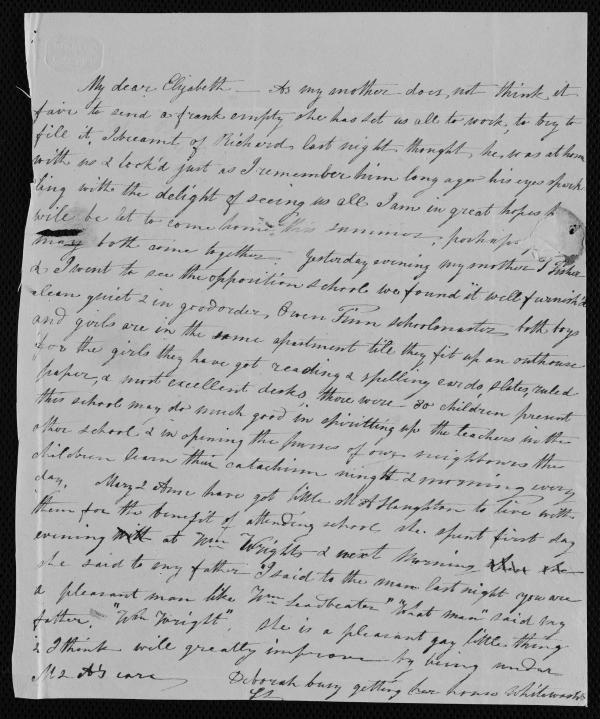 My dear Elizabeth — As my mother does not think it
fair to send a frank empty she has set us all to work, to try to
fill it, I dreamt of Richard last night thought he was at home
with us & look'd just as I remember him long ago his eyes spark
ling with the delight of seeing us all I am in great hopes
will be let to come home this summer, perhaps
may both come together. Yesterday evening my mother T Fisher
& I went to see the opposition school we found it well furnish'd
clean quiet & in good order, Owen Finn schoolmaster, both boys
and girls are in the same apartment till they fit up an outhouse
for the girls they have got reading & spelling cards, slates, ruled
paper, & most excellent desks, there were 30 children present
this school may do much good in spiritting up the teachers in the
other school & in opening the purses of our neighbours the
children learn their catachism night & morning every
day. Mary & Anne have got little M A Haughton to live with
them for the benefit of attending school she spent first day
evening at Wm Wrights & next morning
she said to my father "I said to the man last night you are
a pleasant man like Wm Leadbeater" "What man" said my
father, "Wm Wright". She is a pleasant gay little thing
& I think will greatly improve by being under
M & A's care Deborah busy getting her house whitewash'd